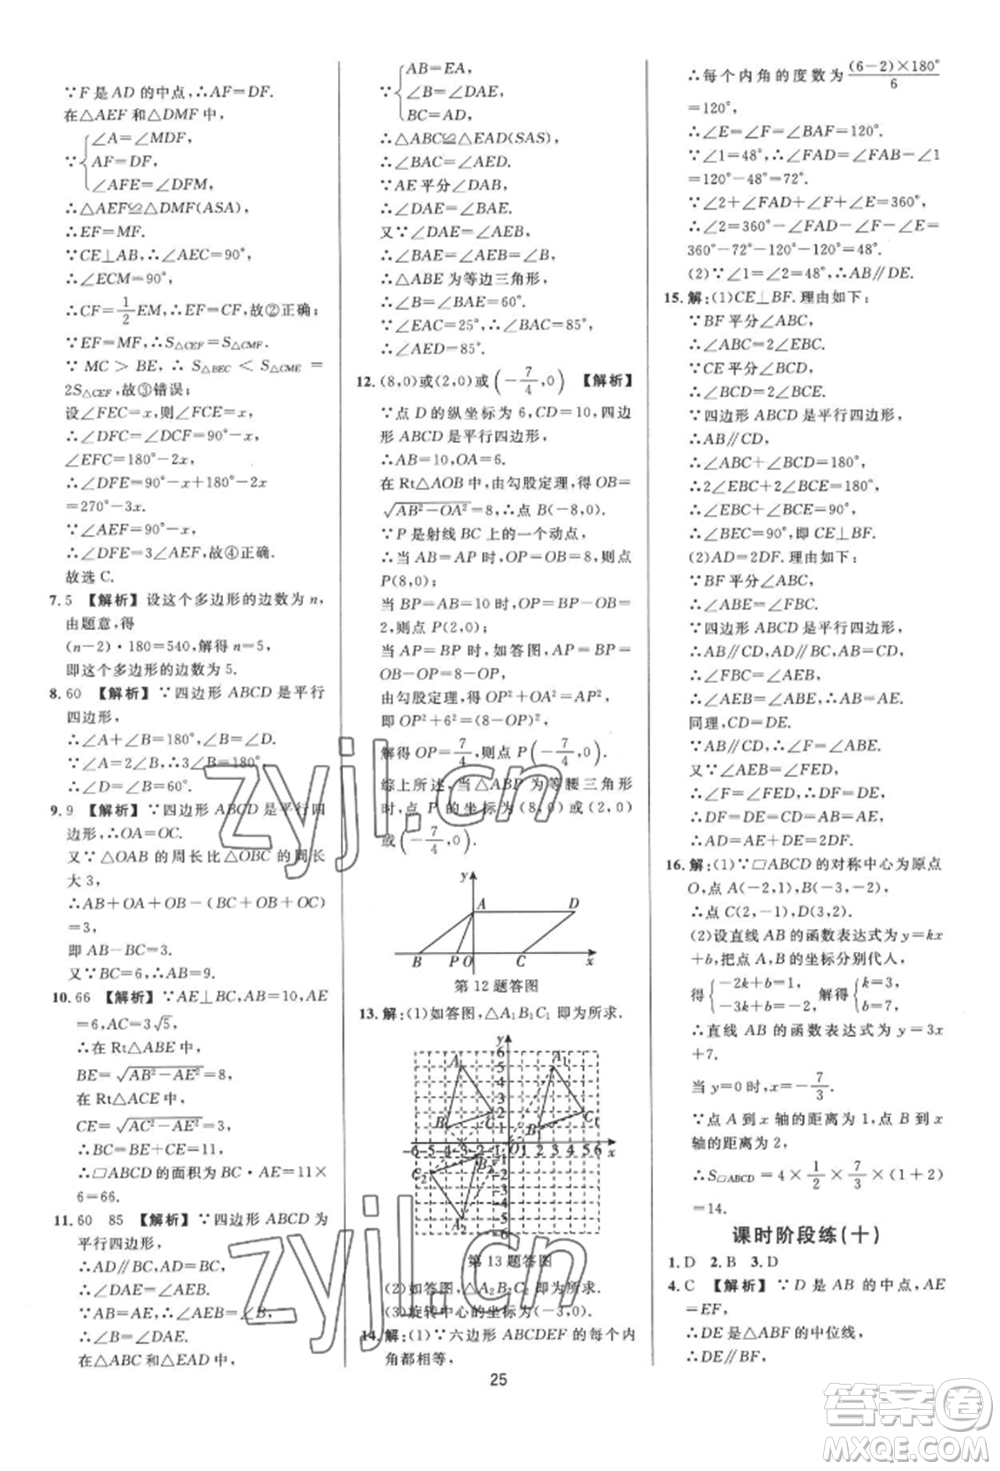 ∵F 是 AD 的中点,∴AF=DF.
在△AEF 和△DMF 中,
∠A=∠MDF,
∵ AF=DF,
∠AFE=∠DFM,
∴△AEF≌△DMF(ASA).
∴EF=MF.
∵CE⊥AB,∴∠AEC=90°.
∴∠ECD=∠AEC=90°.
∴CF=1/2EM=EF,故②正确;
∵EF=MF,∴S△CEF=S△CMF.
∵ MC > BE, ∴ S△BEC < S△CME =
2S△CEF,故③错误;
设∠FEC=x,则∠FCE=x.
∴∠DFC=∠DCF=90°-x.
∠EFC=180°-2x.
∴∠DFE=90°-x+180°-2x
=270°-3x.
∵∠AEF=90°-x,
∴∠DFE=3∠AEF,故④正确.
故选 C.
7. 5 【解析】设这个多边形的边数为 n,
由题意,得
(n-2)·180=540,解得 n=5,
即这个多边形的边数为 5.
8. 60 【解析】∵四边形 ABCD 是平行
四边形,
∴∠A+∠B=180°,∠B=∠D.
∵∠A=2∠B,∴∠B=60°.
∴∠D=60°.
9. 9 【解析】∵四边形 ABCD 是平行四
边形,∴OA=OC.
又∵△OAB 的周长比△OBC 的周长
大 3,
∴OA+OB+AB-(OB+OC+BC)
=3,
即 AB-BC=3.
又∵BC=6,∴AB=9.
10. 66 【解析】∵AE⊥BC,AB=10,AE
=6,AC=3√5,
∴在 Rt△ABE 中,
BE=√(AB²-AE²)=8,
在 Rt△ACE 中,
CE=√(AC²-AE²)=3.
∴BC=BE+CE=11.
∴▱ABCD 的面积为 BC·AE=11×
6=66.
11. 60 85 【解析】∵四边形 ABCD 为
平行四边形,
∴AD∥BC,AD=BC.
∴∠DAE=∠AEB.
∵AB=AE,∴∠AEB=∠B.
∴∠B=∠DAE.
在△ABC 和△EAD 中,
AB=EA,
∵ ∠B=∠DAE,
BC=AD,
∴△ABC≌△EAD(SAS).
∴∠BAC=∠AED.
∵AE 平分∠DAB,
∴∠DAE=∠BAE.
又∵∠DAE=∠AEB=∠B,
∴∠BAE=∠AEB=∠B.
∴△ABE 为等边三角形.
∴∠BAE=60°.
∵∠EAC=25°,∴∠BAC=85°.
∴∠AED=85°.
12. (8,0)或(2,0)或(-7/4,0) 【解析】
∵点 D 的纵坐标为 6,CD=10,四边
形 ABCD 是平行四边形,
∴AB=10,OA=6.
在 Rt△AOB 中,由勾股定理,得 OB=
√(AB²-OA²)=8,∴点 B(-8,0).
∵P 是射线 BC 上的一个动点,
∴当 AB=AP 时,OP=OB=8,则点
P(8,0);
当 BP=AB=10 时,OP=BP-OB=
2,则点 P(2,0);
当 AP=BP 时,如答图,AP=BP=
8-OP,
由勾股定理,得 OP²+OA²=AP²,
即 OP²+6²=(8-OP)²,
解得 OP=7/4,则点 P(-7/4,0).
综上所述,当△ABP 为等腰三角形
时,点 P 的坐标为(8,0)或(2,0)
或(-7/4,0).
y
A D
B P O C x
第 12 题答图
13. 解:(1)如答图,△A₁B₁C₁ 即为所求.
y
6
5
4
3
2
1
A A₁
B C B₁ C₁
-6-5-4-3-2-1 O 1 2 3 4 5 6 x
C₂ B₂
A₂
第 13 题答图
(2)如答图,△A₂B₂C₂ 即为所求.
(3)旋转中心的坐标为(-3,0).
14. 解:(1)∵六边形 ABCDEF 的每个内
角都相等,
∴每个内角的度数为(6-2)×180°/6
=120°.
∴∠E=∠F=∠BAF=120°.
∵∠1=48°,∴∠FAD=∠FAB-∠1=
120°-48°=72°.
∵∠2+∠FAD+∠F+∠E=360°,
∴∠2=360°-∠FAD-∠F-∠E=
360°-72°-120°-120°=48°.
(2)∵∠1=∠2=48°,∴AB∥DE.
15. 解:(1)CE⊥BF.理由如下:
∵BF 平分∠ABC,
∴∠ABC=2∠EBC.
∵CE 平分∠BCD,
∴∠BCD=2∠BCE.
∵四边形 ABCD 是平行四边形,
∴AB∥CD,
∴∠ABC+∠BCD=180°,
∴2∠EBC+2∠BCE=180°,
∴∠EBC+∠BCE=90°,
∴∠BEC=90°,即 CE⊥BF.
(2)AD=2DF.理由如下:
∵BF 平分∠ABC,
∴∠ABE=∠FBC.
∵四边形 ABCD 是平行四边形,
∴AD∥BC,AB=CD,
∴∠AEB=∠FBC,
∴∠ABE=∠AEB,∴AB=AE.
同理,CD=DE.
∵AB∥CD,∴∠ABE=∠F.
又∵∠AEB=∠FED,
∴∠F=∠FED,
∴DF=DE=CD=AB=AE,
∴AD=AE+DE=2DF.
16. 解:(1)∵▱ABCD 的对称中心为原点
O,点 A(-2,1),B(-3,-2),
∴点 C(2,-1),D(3,2).
(2)设直线 AB 的函数表达式为 y=kx
+b,把点 A,B 的坐标分别代入,
得{-2k+b=1, 解得{k=3,
-3k+b=-2, b=7,
∴直线 AB 的函数表达式为 y=3x
+7.
当 y=0 时,x=-7/3.
∵点 A 到 x 轴的距离为 1,点 B 到 x
轴的距离为 2,
∴S▱ABCD=4×1/2×7/3×(1+2)
=14.
课时阶段练(十)
1. D 2. B 3. D
4. C 【解析】∵D 是 AB 的中点,AE
=EF,
∴DE 是△ABF 的中位线,
∴DE∥BF.
25
zyjl.cn
zyjl.cn
答案圈
MXQE.COM